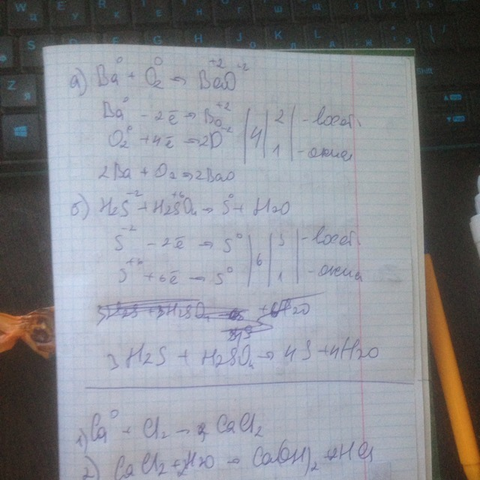 а) Ba⁰ + O₂⁰ → Ba⁺²O⁻²
Ba⁰ - 2ē → Ba⁺² | 4 | 2 | - восст.
O₂⁰ + 4ē → 2O⁻² | | 1 | - окис
2Ba + O₂ → 2BaO
б) H₂S⁻² + H₂S⁺⁶O₄ → S⁰ + H₂O
S⁻² - 2ē → S⁰ | 6 | 3 | - восст.
S⁺⁶ + 6ē → S⁰ | | 1 | - окис
3H₂S + H₂SO₄ → 4S + 4H₂O
1) Ca⁰ + Cl₂ → CaCl₂
2) CaCl₂ + H₂O → Ca(OH)₂ + HCl